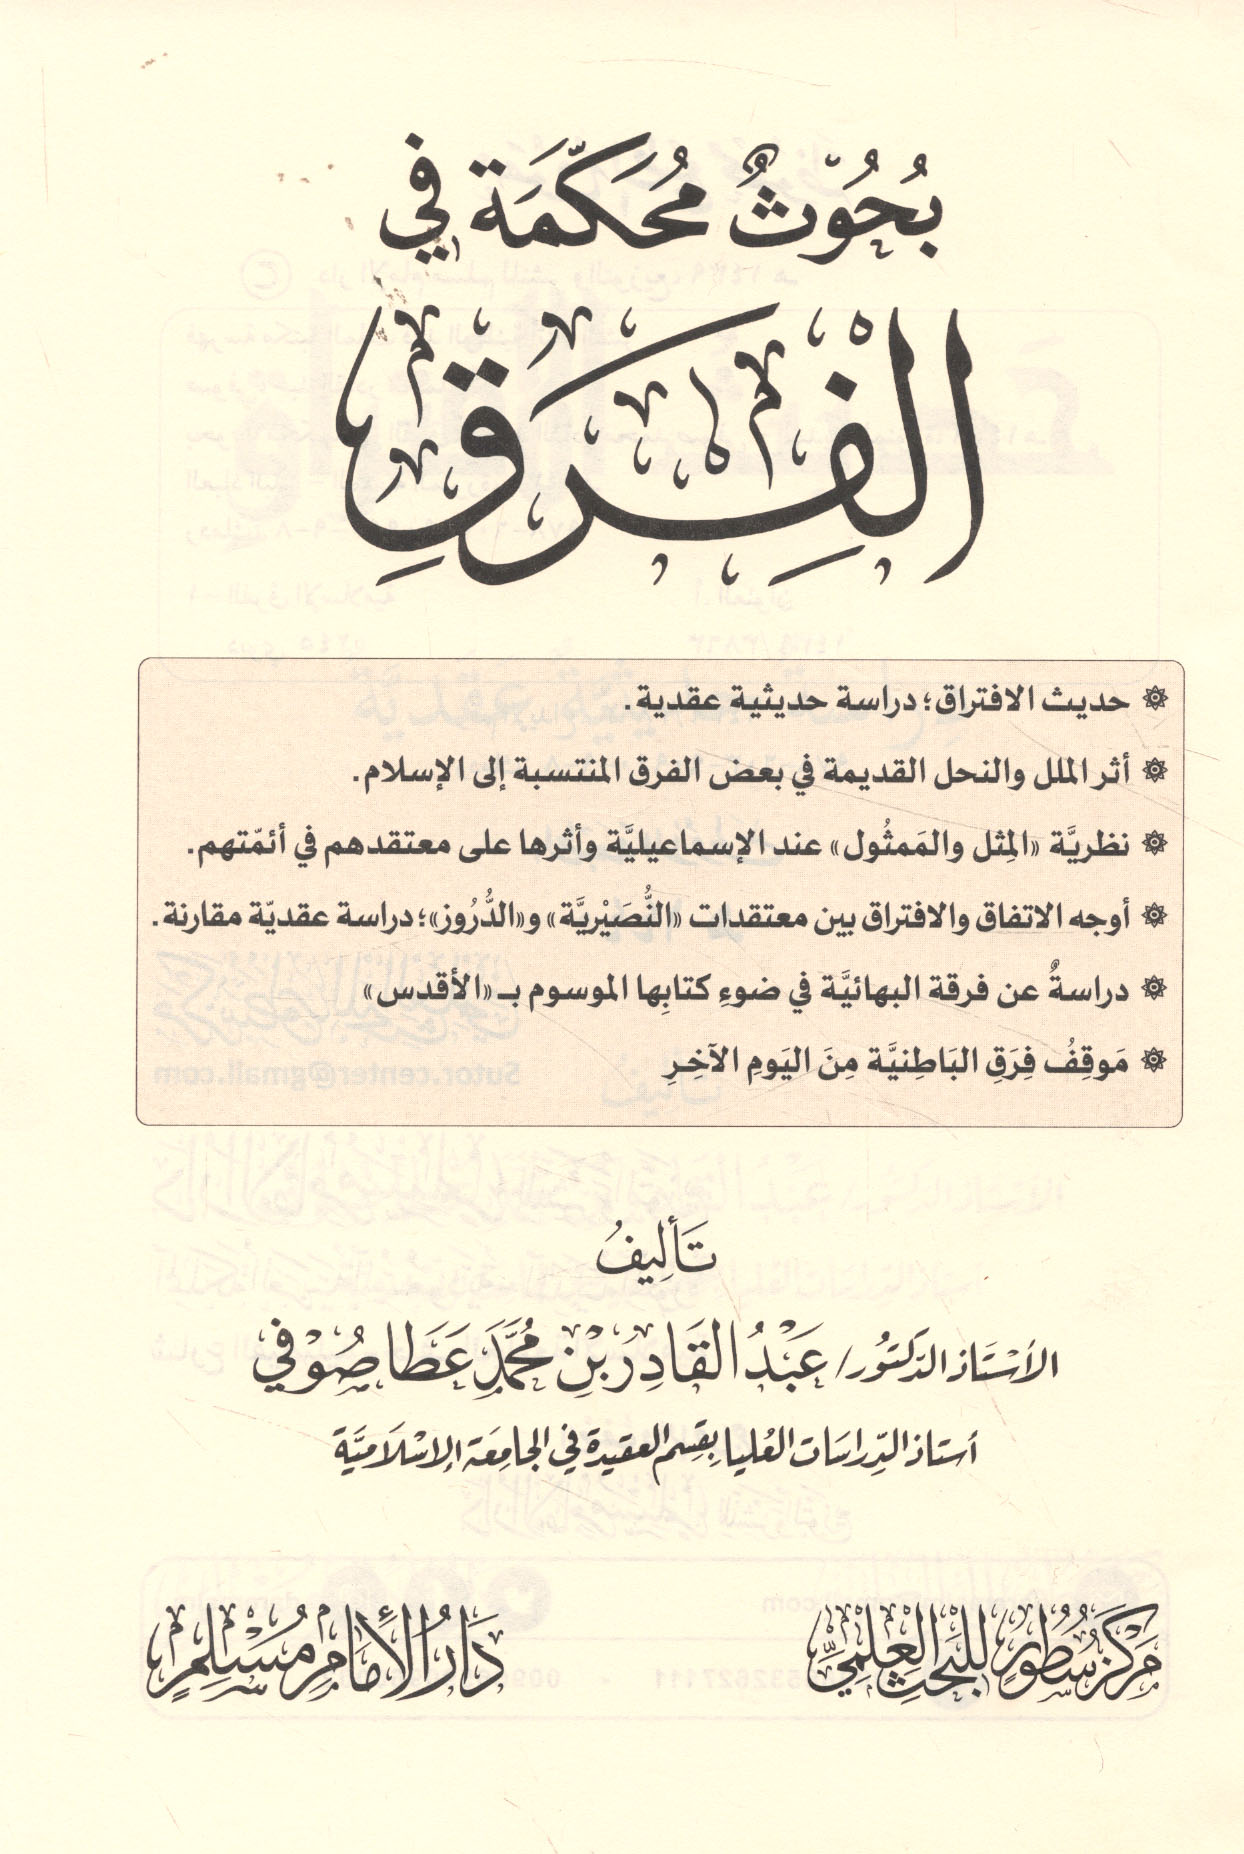 بُحُوْثٌ مُحَكَّمَة في
الْفِرَقِ
حديث الافتراق؛ دراسة حديثية عقدية.
أثر الملل والنحل القديمة في بعض الفرق المنتسبة إلى الإسلام.
نظريَّة «المِثل والمَمثُول» عند الإسماعيليَّة وأثرها على معتقدهم في أئمّتهم.
أوجه الاتفاق والافتراق بين معتقدات «النُّصَيْريَّة» و«الدُّرُوز»؛ دراسة عقديّة مقارنة.
دراسةٌ عن فرقة البهائيَّة في ضوءِ كتابِها الموسوم بـ «الأقدس»
مَوقِفُ فِرَقِ البَاطِنيَّة مِنَ اليَومِ الآخِرِ
تَأليفُ
الأسْتَاذ الدّكتُور/ عَبْدُ القَادِر بْن مُحَمَّد عَطَا صُوْفي
أستاذ الدِّراسَات العُليا بقِسم العقيدة في الجامِعَة الإسْلَاميَّة
مَرْكَز سُطُورٌ للبَحْثِ العِلْمِيِّ
دَارُ الإمَامِ مُسْلِمٍ